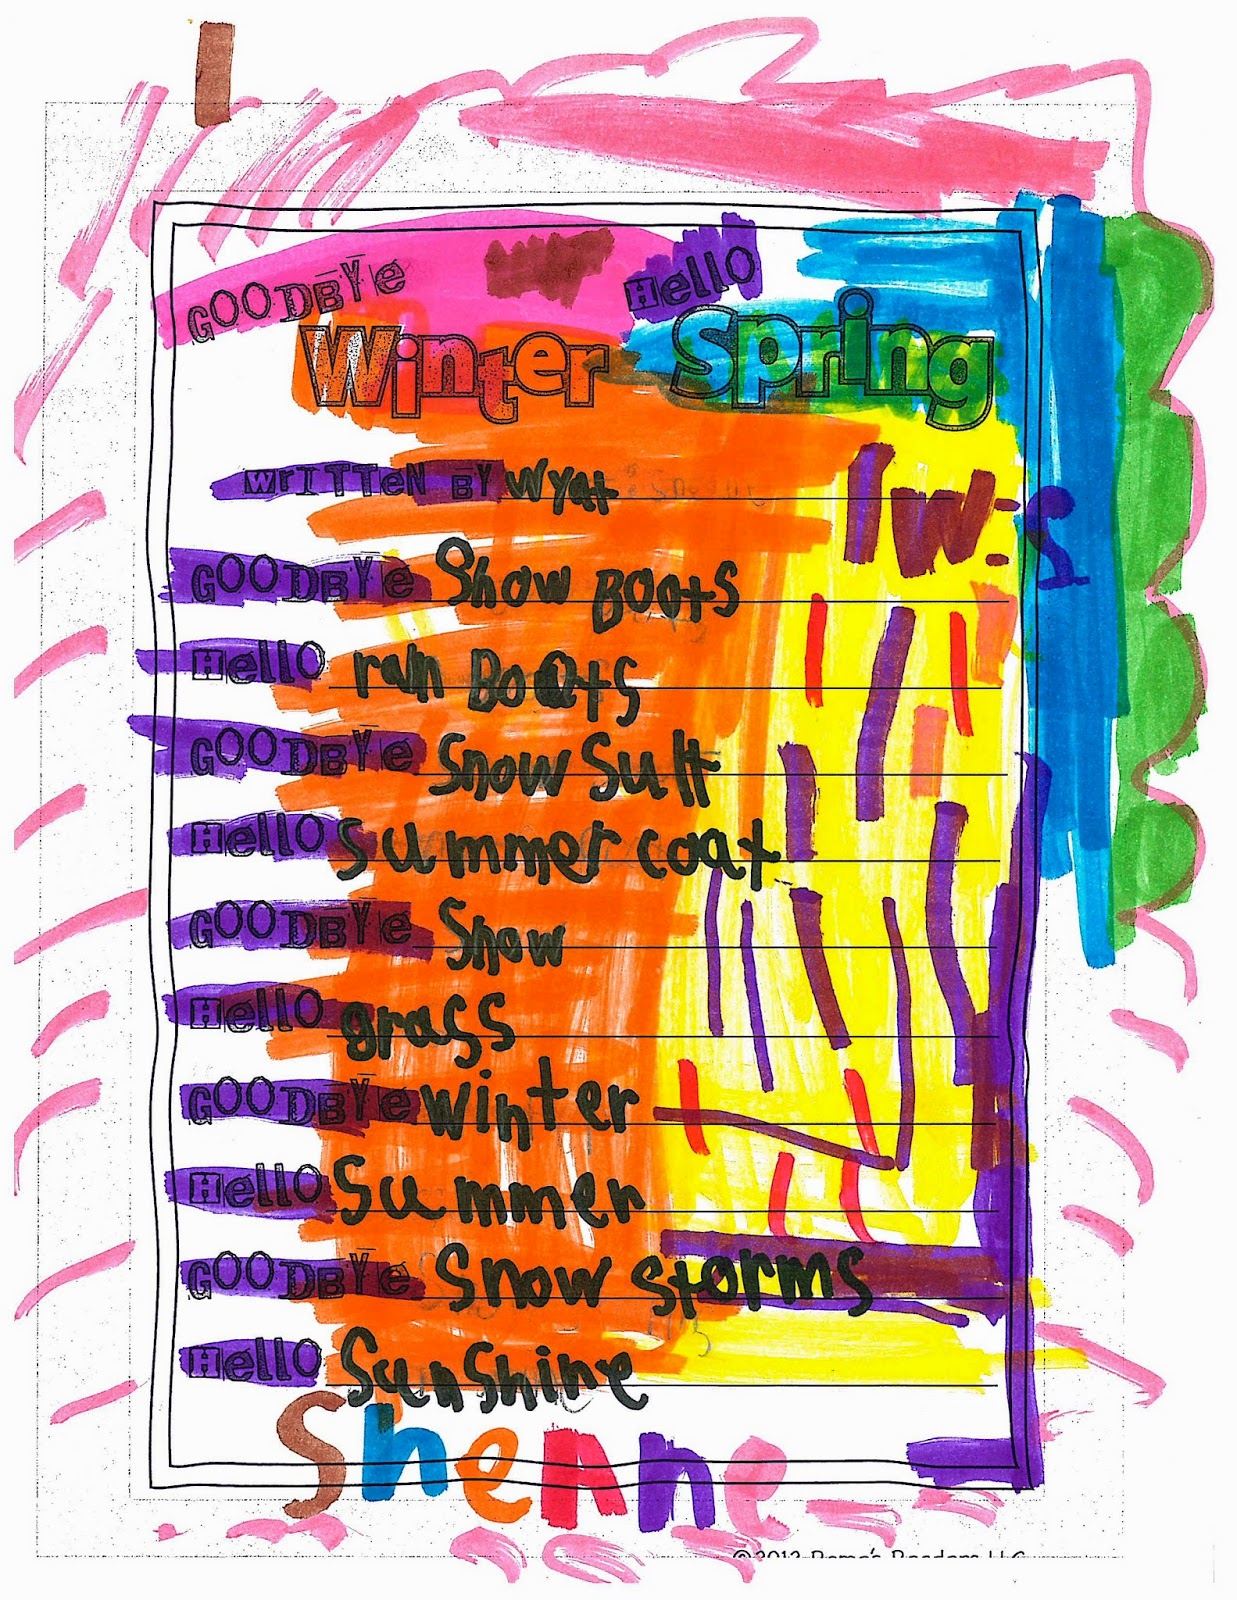 GOODBYE Hello
Winter Spring
Written BY Wyat
GOODBYE Snow Boots
Hello rain Boots
GOODBYE Snow Suit
Hello Summer coat
GOODBYE Snow
Hello grass
GOODBYE Winter
Hello Summer
GOODBYE Snow storms
Hello Sunshine
Shenne